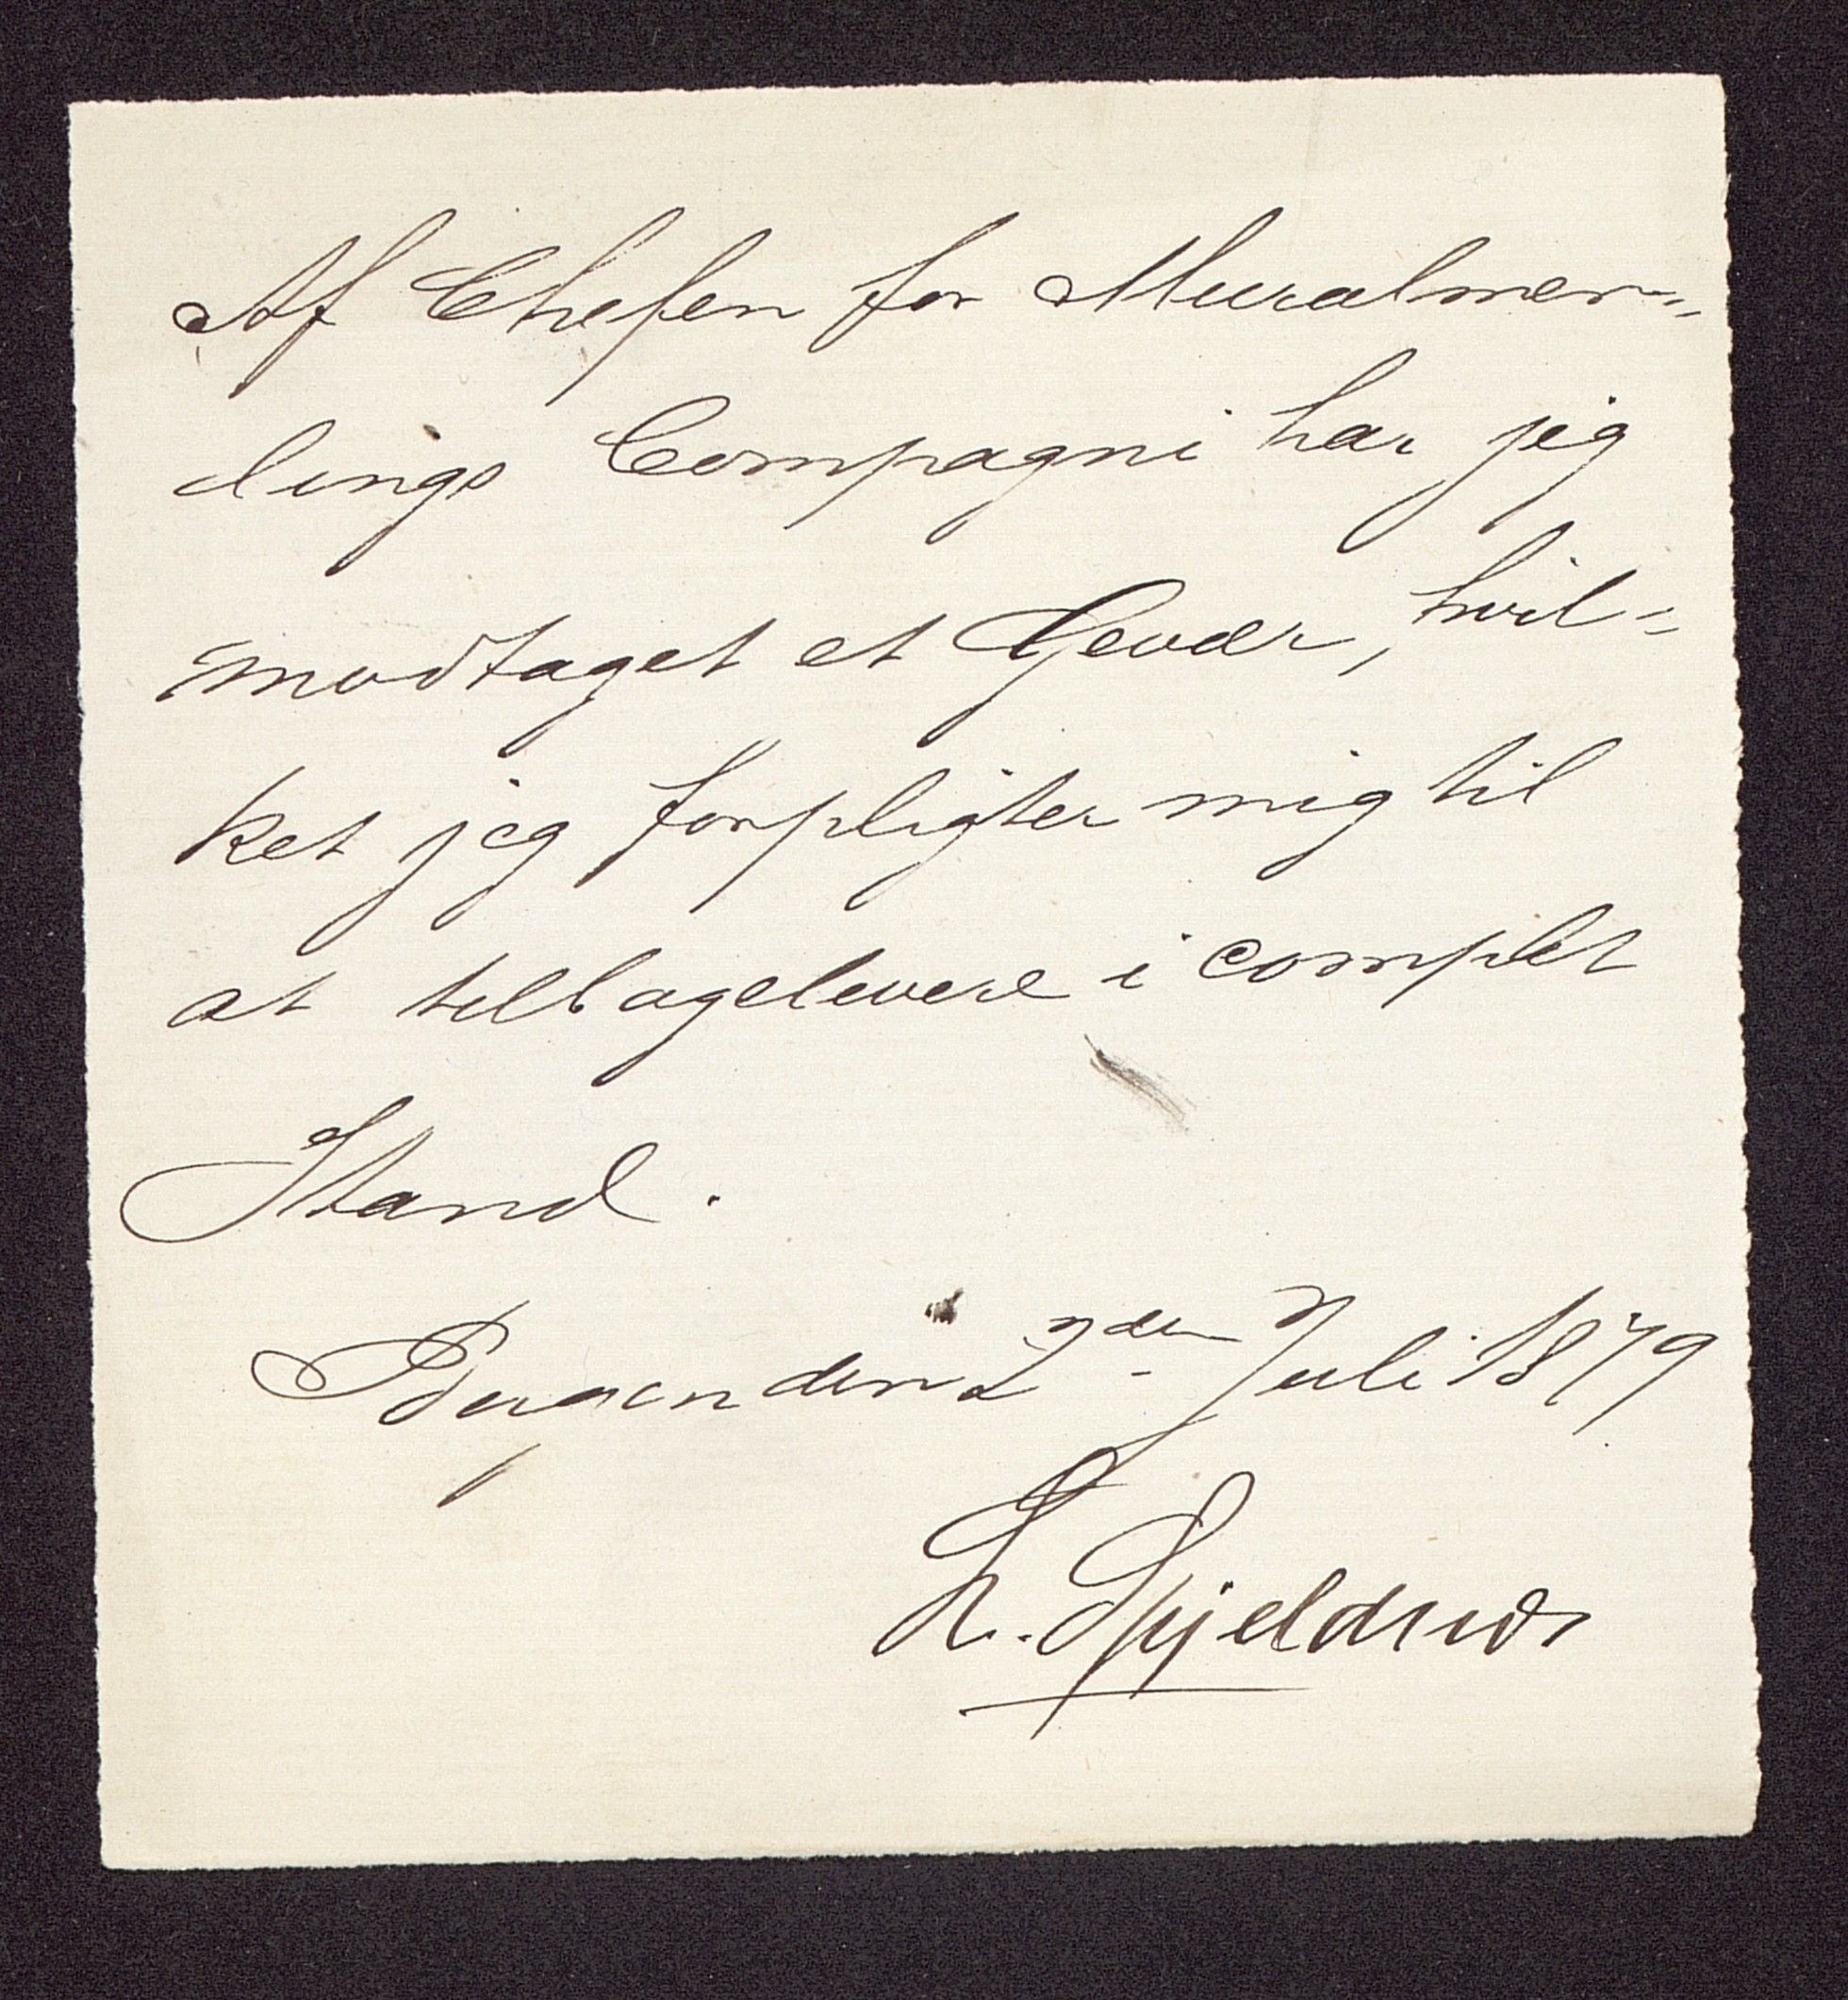 Af Chefen for Muralmen=
dings Compagni har jeg
modtaget et Gevær, hvil=
ket jeg forpligter mig til
at tilbagelevere i complet
Stand.
Bergen den 2den Juli 1879
L.